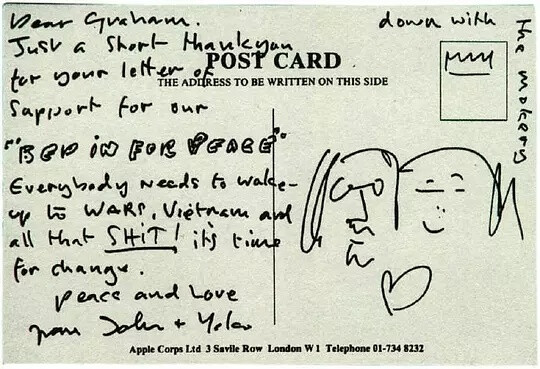 Dear Graham.
Just a short thankyou
for your letter of
support for our
"BED IN FOR PEACE"
Everybody needs to wake-
up to WARS, Vietnam and
all that SHIT! its time
for change.
peace and love
from John + Yoko
down with
the
POST CARD
THE ADDRESS TO BE WRITTEN ON THIS SIDE
Apple Corps Ltd 3 Savile Row London W1 Telephone 01-734 8232